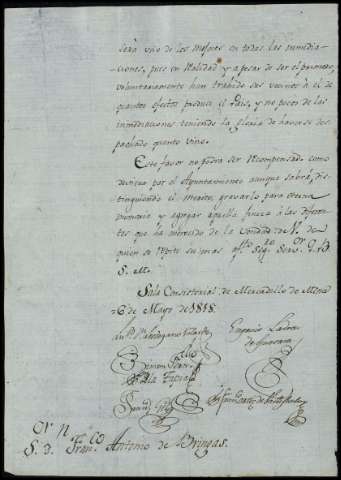 será uno de los mejores en todas las inmedia-
ciones, pues en realidad y a pesar de ser el primero,
voluntariamente han trahido sus vecinos à él de
quantos efectos produce el Pais, y no pocos de las
inmediaciones teniendo la gloria de haverse des
pachado quanto vino.
Este favor no podrá ser recompensado como
deviera por el Ayuntamiento aunque sabrá, dis-
tinguiendo el merito, gravarlo para eterna
memoria y agregar aquella fineza à las diferen-
tes que ha merecido de la vondad de V. de
quien se repite su mas
S. M.
Sala Consistorial de Mercadillo de Mena
6 de Mayo de 1818.
Eugenio Ladron
de Guevara
Ramon
S. D. Franco. Antonio de Bringas.